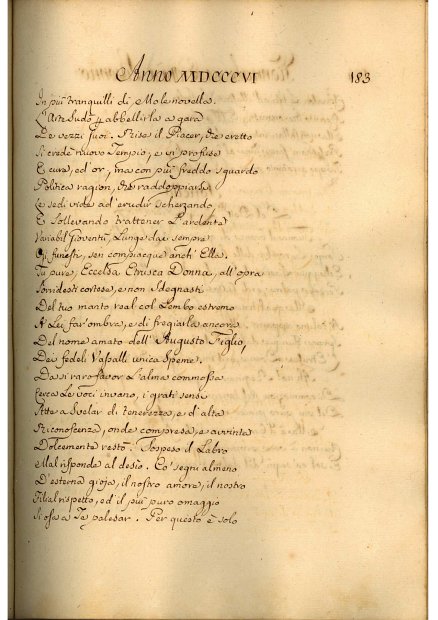 Anno MDCCCVI
183
In più tranquilli dì Mole novella.
L'Arte sudò p abbellirla a gara
De vezzi suoi. Rise il Piacer, che eretto
Si crede nuovo Tempio, e vi profuse
E cura, ed'or, ma con più freddo sguardo
Politica ragion, che raddoppiarsi
Le sedi vide ad'erudir scherzando,
E sollevando trattener l'ardente
Variabil Gioventù, lunge dai sempre
Ozj funesti, sen compiacque anch'Ella.
Tu pure, Eccelsa Etrusca Donna, all'opra
Sorridesti cortese, e non sdegnasti
Del tuo manto real col Lembo estremo
A Lei far'ombra, e di fregiarla ancora
Del nome amato dell'Augusto Figlio,
Dei fedeli Vassalli unica speme.
Da sì raro favor L'alma commossa
Cerca Le voci invano, i grati sensi
Atte a svelar di tenerezza, e d'alta
Riconoscenza, onde compresa, e avvinta
Dolcemente restò. Sospeso il Labro
Mal risponde al desìo. Co' segni almeno
D'esterna gioja, il nostro amore, il nostro
Filial rispetto, ed il più puro omaggio
Si osa a Te palesar. Per questo è solo